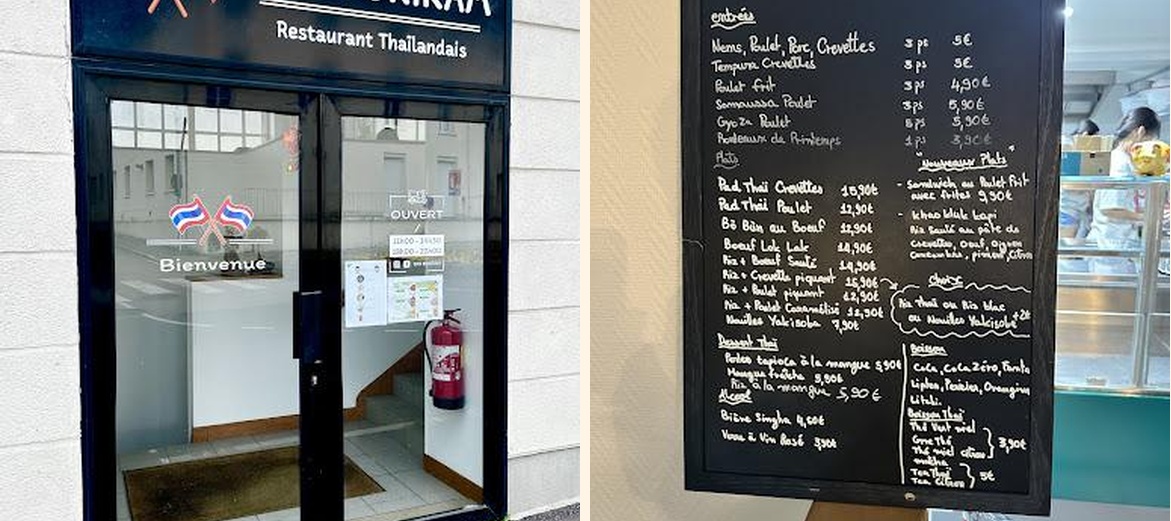 Restaurant Thaïlandais
Bienvenue
OUVERT
11h00 - 14h30
entrées
Nems, Poulet, Porc, Crevettes 3 ps 5€
Tempura Crevettes 3 ps 5€
Poulet frit 3 ps 4,90€
Samoussa Poulet 3 ps 5,90€
Gyoza Poulet 5 ps 5,90€
Rouleaux de Printemps 1 ps 3,90€
Plats
Pad Thaï Crevettes 15,90€
Pad Thaï Poulet 12,90€
Bô Bùn au Boeuf 12,90€
Boeuf Lok Lak 14,90€
Riz + Boeuf Sauté 14,90€
Riz + Crevette piquant 15,90€
Riz + Poulet piquant 12,90€
Riz + Poulet Caramélisé 12,90€
Nouilles Yakisoba 7,90€
Dessert Thaï
Perles tapioca à la mangue 5,90€
Mangue fraîche 5,90€
Riz à la mangue 5,90€
Alcool
Bière Singha 4,50€
Verre à Vin Rosé 3,90€
"Nouveaux Plats"
- Sandwich au Poulet Frit
avec frites 9,90€
- Khao kluk kapi
Riz Sauté au pâte de
Crevettes, Oeuf, Oignon
piment, Citron
choix
Riz Thaï ou Riz blanc
ou Nouilles Yakisoba +2€
Boisson
Coca, Coca Zéro, Fanta
Lipton, Perrier, Orangina
Litchi.
Boisson Thaï
Thé Vert miel
Thé miel citron 3,90€
matcha
Tea Thaï
Tea Citron 5€